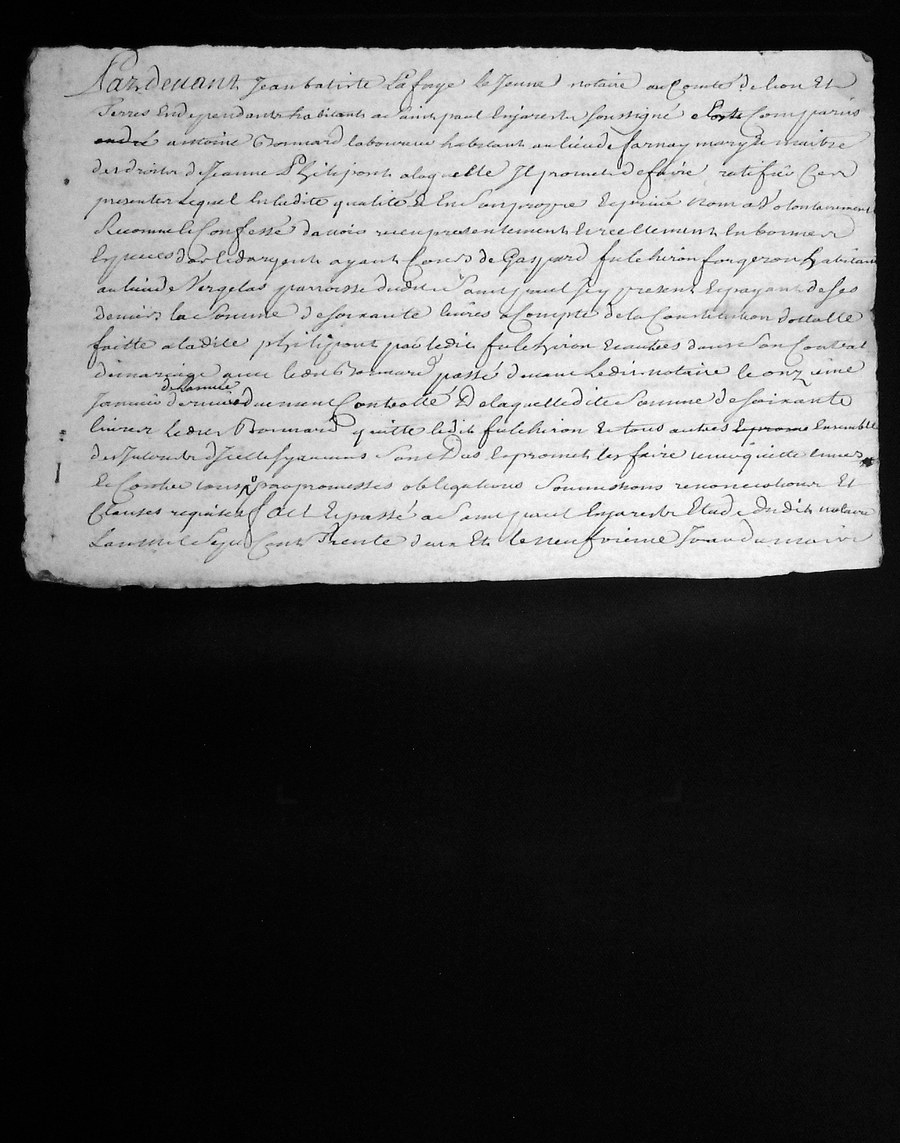 Pardevant Jean batiste Lafaye le Jeune notaire au Comté de lion Et
Terres Endependantes habitant a saint paul Enjarests soussigné Comparû
antoine Bonnard laboureux habitant au lieu de farnay marÿ Et maitre
des droits de Jeanne Philipont a laquelle Il promet de faire ratifier Ces
presentes lequel En ladite qualité Et En son propre Et privé nom a Volontairement
Reconnu Et Confessé d'avoir reçeu presentement Et reellement En bonnes
Especes d'or Et d'argent ayant Cours de Gaspard fulchiron forgeron habitant
au lieu de Vergelas parroisse dudit Saint paul Icy present Et payant de ses
deniers la Somme de soixante livres a Compte de la Constitution dottalle
faitte a ladite philipont par ledit fulchiron Et autres dans son Contrat
de mariage avec ledit Bonnard passé devant Ledit notaire le onzieme
de l'année
Janvier derniere duement Controllé De laquelle dite Somme de soixante
livres Ledit Bonnard quitte ledit fulchiron Et tous autres Ensemble
des Interests d'Icelle sy aucuns sont Dus Et promet les faire tenir quitte Envers
Et Contre tous par promesses obligations Soumissions renonciations Et
Clauses requises fait Et passé a Saint paul Enjarests Etude dudit notaire
L'an mil Sept Cent Trente deux Et le neufvieme Jour du mois